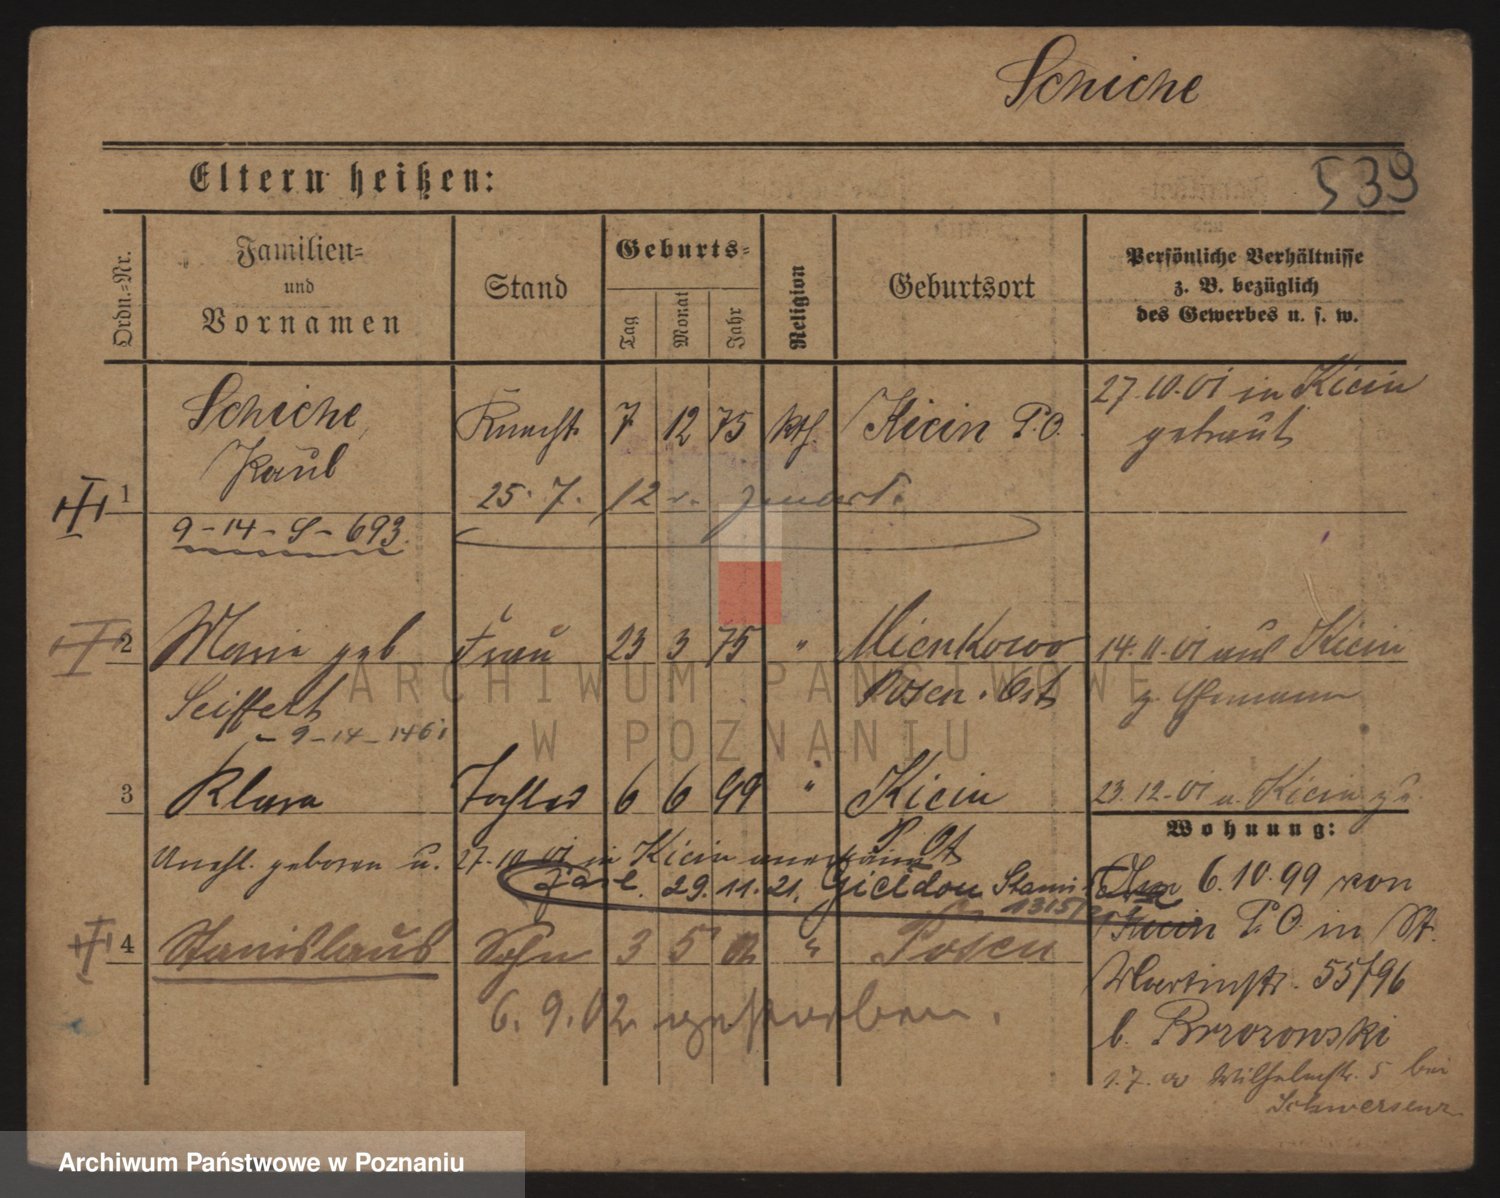 Schiche
539
Eltern heißen:
Ordn.-Nr.
Familien-
und
Vornamen
Stand
Geburts-
Tag
Monat
Jahr
Religion
Geburtsort
Persönliche Verhältnisse
z. B. bezüglich
des Gewerbes u. s. w.
1
Schiche
Knecht 7 12 75 kth. Kicin P.O.
27.10.01 in Kicin
getraut
25. 7. 12
9-14-S-693
2
Marie geb
Seiffert
9-14-146
Frau 23 3 75 " Mienkowo
Posen-Ost
14.11.01 aus Kicin
z. Ehemann
3
Klara Tochter 6 6 99 " Kicin
P. Ost
23.12.01 a. Kicin zu.
Unehl. geboren u. 27.10.01 in Kicin anerkannt
29.11.21.
4
Stanislaus Sohn 3 5 02 " Posen
6.9.02 gestorben.
Wohnung:
6.10.99 von
Kicin P.O in St.
Martinstr. 55/96
b. Brzozowski
1.7.00 Wilhelmstr. 5 bei
Schwersenz
ARCHIWUM PAŃSTWOWE
W POZNANIU
Archiwum Państwowe w Poznaniu